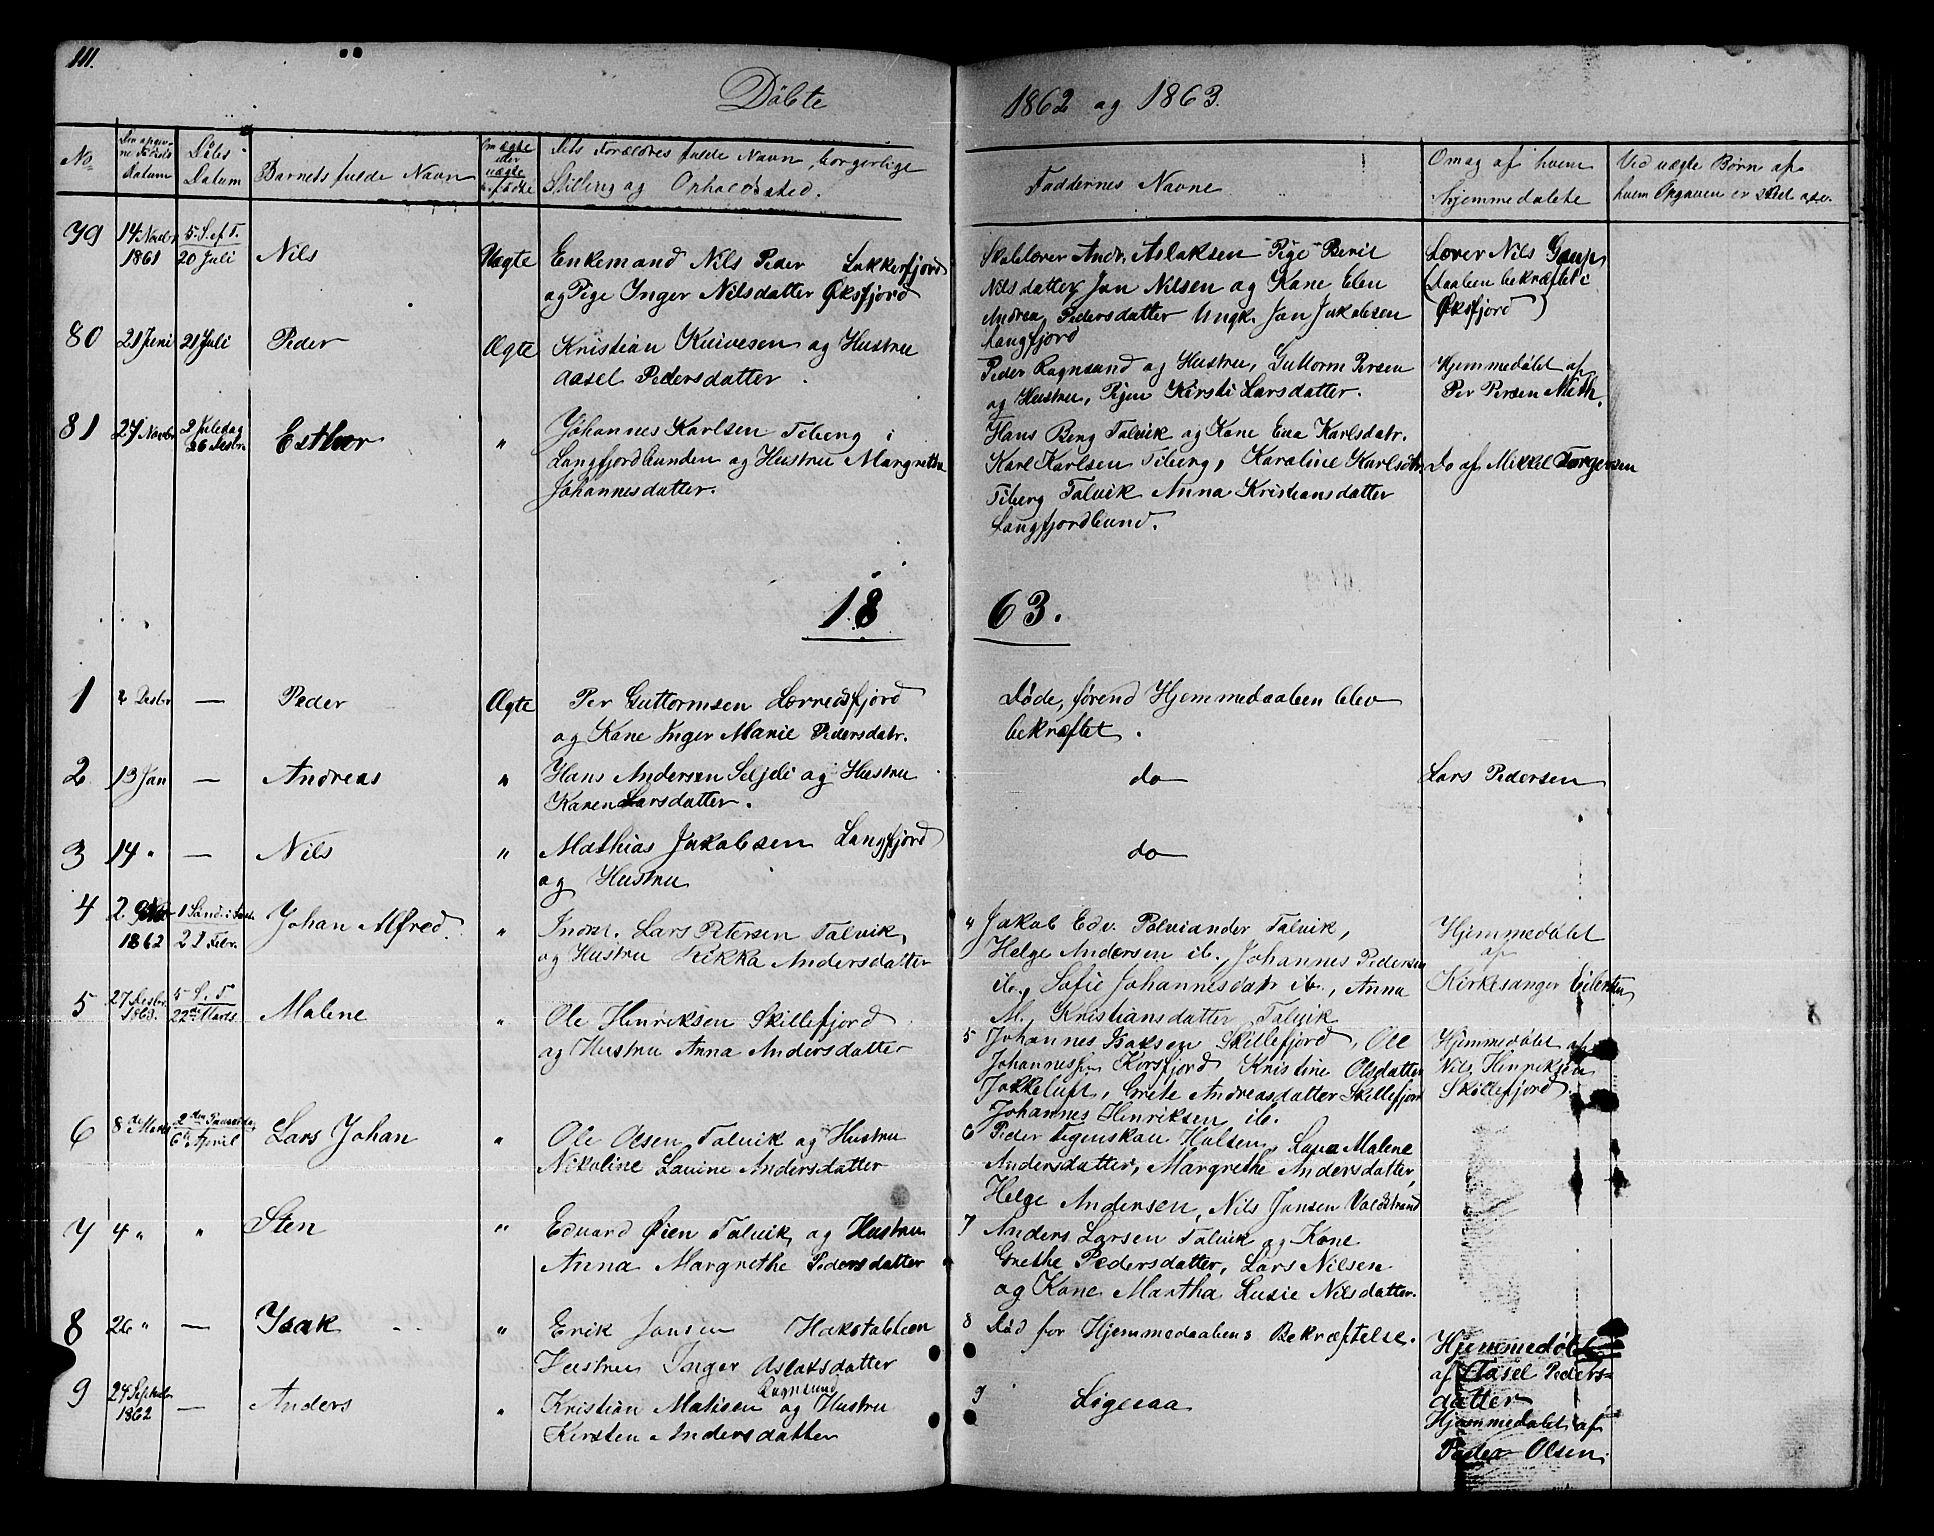 111.
Döbte
1862 og 1863.
No.
Den opgiv-
ne Födsels
datum
Döbs
Datum
Barnets fulde Navn
Om ægte
eller
uægte
födte
Dets Forældres fulde Navn, borgerlige
Stilling og Opholdssted.
Faddernes Navne
Om og af hvem
hjemmedöbte
Ved uægte Börn af
hvem Opgaven er
79
14 Novbr
1861
5. S. ef T.
20 Juli
Nils
Uægte
Enkemand Nils Peder Lukkerfjord
og Pige Inger Nilsdatter Øksfjord
Skolelærer Andr. Aslaksen Pige Berit
Nilsdatter, Jon Nilsen og Kone Elen
Andrea Pedersdatter Ungk. Jon Jakobsen
Langfjord
Lærer Nils Gaup
(Daaben bekræftet i
Øksfjord)
80
21 Juni
21 Juli
Peder
Ægte
Kristian Kuivesen og Hustru
Aasel Pedersdatter.
Peder Ragnsund og Hustru, Guttorm Persen
og Hustru, Pigen Kirsti Larsdatter.
Hjemmedöbt af
Per Persen Mieth.
81
27 Novbr
2 Juledag
26 Desbr.
Esther
"
Johannes Karlsen Tiberg i
Langfjordbunden og Hustru Margrethe
Johannesdatter.
Hans Berg Talvik og Kone Eva Karlsdatr.
Karl Karlsen Tiberg, Karoline Karlsdtr.
Tiberg Talvik Anna Kristiansdatter
Langfjordbund.
Do af Mikkel Torgersen
18 63.
1
2 Desbr
—
Peder
Ægte
Per Guttormsen Lerredsfjord
og Kone Inger Marie Pedersdatr.
Döde, förend Hjemmedaaben blev
bekræftet.
2
13 Jan
—
Andreas
"
Hans Andersen Seljdi og Hustru
Karen Larsdatter.
do
Lars Pedersen
3
14 "
—
Nils
"
Mathias Jakobsen Langfjord
og Hustru
do
4
2
1862
1 Sönd. i Faste
22 Febr.
Johan Alfred.
"
Indr. Lars Petersen Talvik,
og Hustru Rikka Andersdatter
4 Jakob Edv. Palviander Talvik,
Helge Andersen ib., Johannes Pedersen
ib., Sofie Johannesdatr ib., Anna
M. Kristiansdatter Talvik
Hjemmedöbt
af
Kirkesanger Eilertsen
5
27 Desbr.
5 S. i F.
22de Marts
Malene
"
Ole Henriksen Skillefjord
og Hustru Anna Andersdatter
5 Johannes Isaksen Skillefjord, Ole
Johannessen Korsfjord Kristine Olsdatter
Jokkeluft, Grete Andreasdatter Skillefjord
Johannes Henriksen ib.
Hjemmedöbt af
Nils Henriksen
Skillefjord.
6
8de Marts
2den Paaskedag
6te April
Lars Johan
"
Ole Olsen Talvik og Hustru
Nikoline Lavine Andersdatter
6 Peder Figenskau Halsen, Lava Malene
Andersdatter, Margrethe Andersdatter,
Helge Andersen, Nils Jansen Valdstrand
7
4 "
"
Sten
"
Eduard Øien Talvik og Hustru
Anna Margrethe Pedersdatter
7 Anders Larsen Talvik og Kone
Grethe Pedersdatter, Lars Nilsen
og Kone Martha Lusie Nilsdatter.
8
26 "
—
Isak
"
Erik Jonsen Hakstabben
Hustru Inger Aslaksdatter
8 Död för Hjemmedaabens Bekræftelse.
Hjemmedöbt
af Aasel Peders-
datter
9
24 Septbr
1862
—
Anders
"
Kristian Matisen Ragnsund og Hustru
Kirsten Andersdatter
9 Ligesaa
Hjemmedöbt af
Peder Olsen.